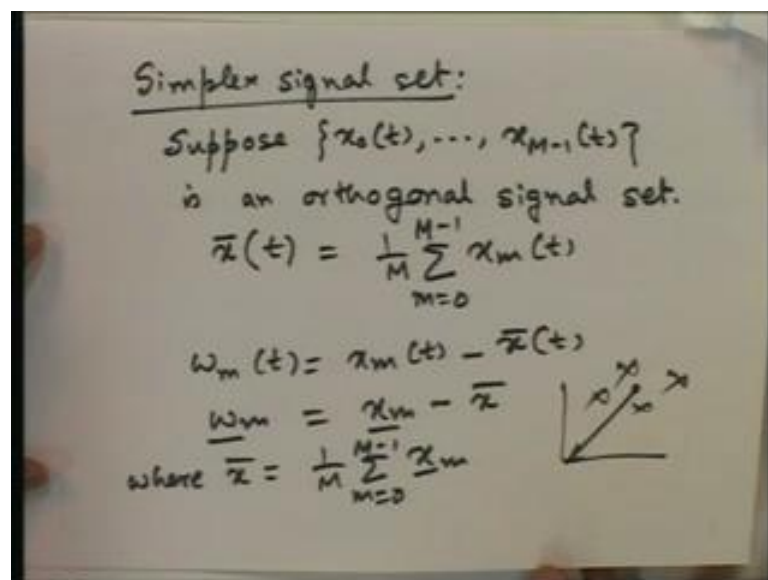 Simplex signal set:
Suppose {x₀(t), ..., x_{M-1}(t)}
is an orthogonal signal set.
x̄(t) = 1/M ∑_{m=0}^{M-1} x_m(t)
w_m(t) = x_m(t) - x̄(t)
w_m = x_m - x̄
where x̄ = 1/M ∑_{m=0}^{M-1} x_m